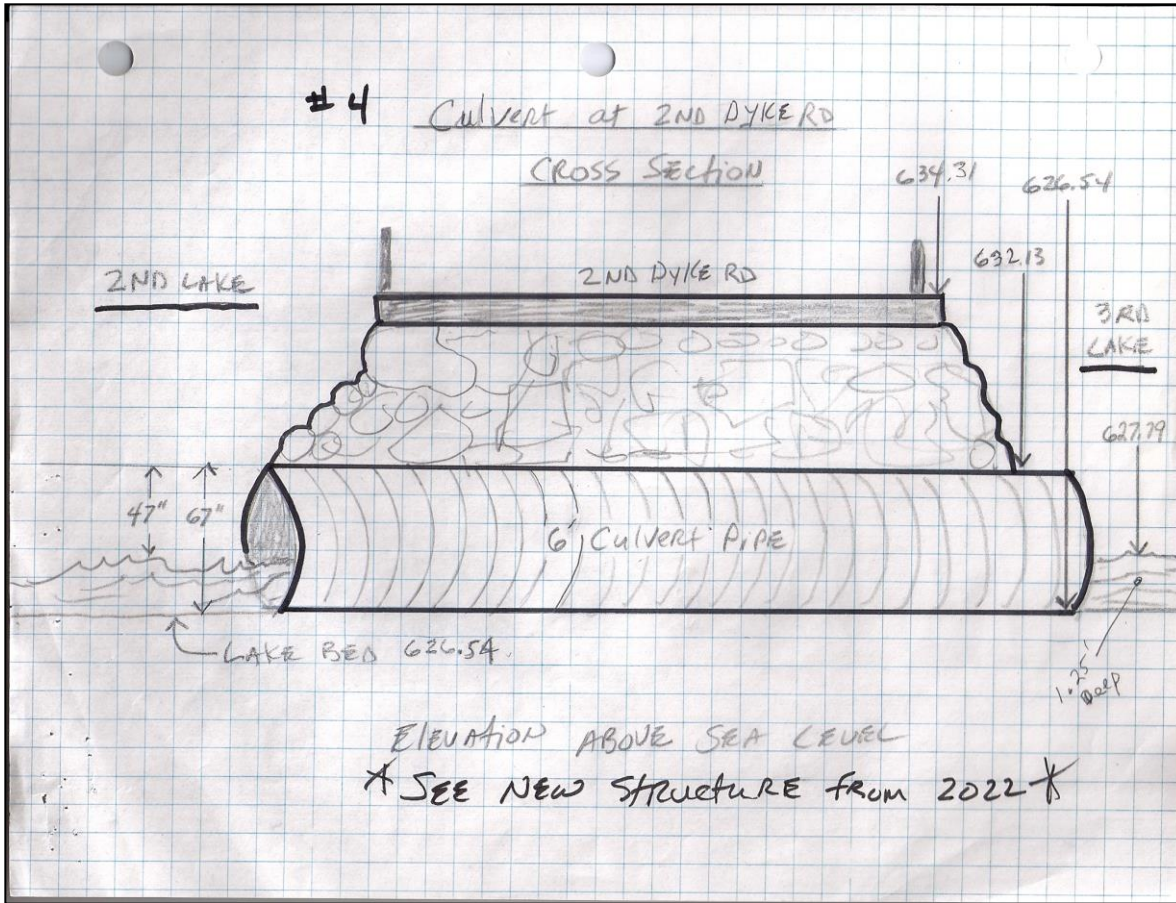 # 4 Culvert at 2ND DYKE RD
CROSS SECTION
634.31
626.54
632.13
2ND LAKE
2ND DYKE RD
3RD
LAKE
627.79
47"
67"
6' Culvert PiPE
LAKE BED 626.54
1.25'
Deep
ElEVAtion ABOVE SEA LEVEL
* SEE NEW StructuRE from 2022 *